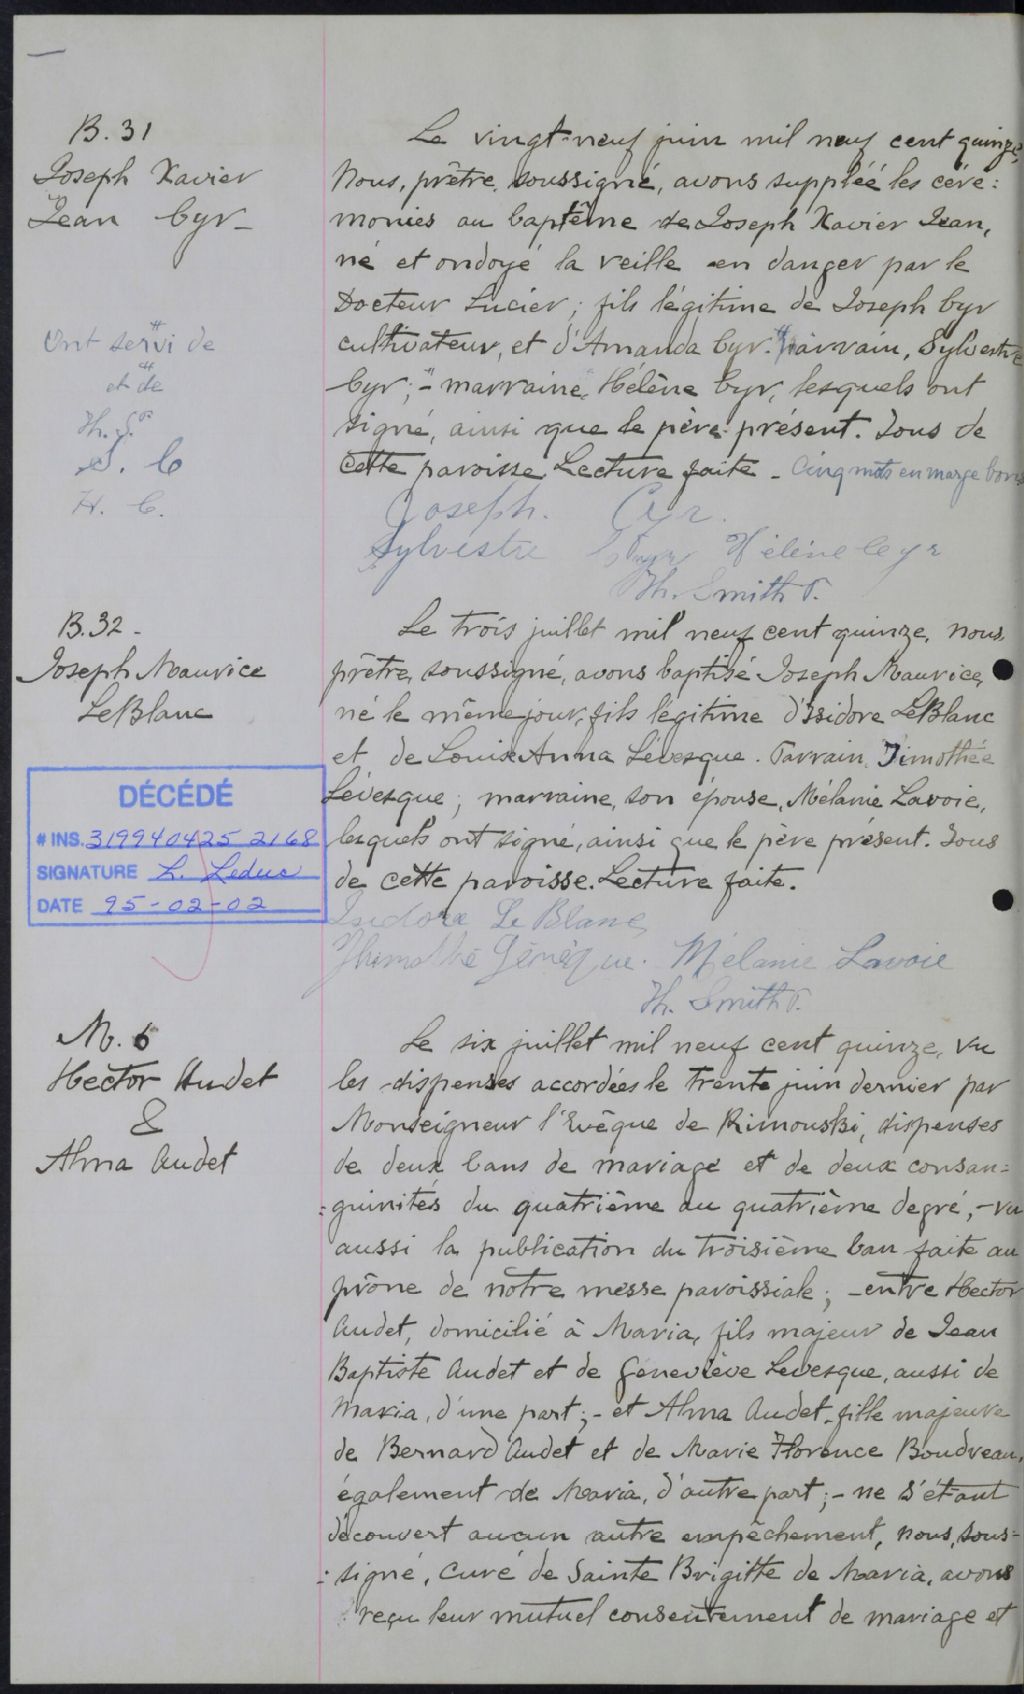 B. 31
Joseph Xavier
Jean Cyr -
Ont servi de
et de
Th. S. P
S. C
H. C.
Le vingt-neuf juin mil neuf cent quinze,
Nous, prêtre, soussigné, avons suppléé les céré=
monies au baptême de Joseph Xavier Jean,
né et ondoyé la veille en danger par le
Docteur Lucier; fils légitime de Joseph Cyr
cultivateur, et d'Amanda Cyr. parrain, Sylvestre
Cyr; - marraine, Hélène Cyr, lesquels ont
signé, ainsi que le père présent. Tous de
cette paroisse. Lecture faite - Cinq mots en marge bons
Joseph. Cyr.
Sylvestre Cyr Hélène Cyr
Th. Smith P.
B. 32 -
Joseph Maurice
LeBlanc
DÉCÉDÉ
# INS. 319940425 2168
SIGNATURE L. Leduc
DATE 95-02-02
Le trois juillet mil neuf cent quinze, nous,
prêtre, soussigné, avons baptisé Joseph Maurice,
né le même jour, fils légitime d'Isidore LeBlanc
et de Louise Anna Lévesque. Parrain, Timothée
Lévesque; marraine, son épouse, Mélanie Lavoie,
lesquels ont signé, ainsi que le père présent. Tous
de cette paroisse. Lecture faite.
Isidore Le Blanc
Mélanie Lavoie
Th. Smith P.
M. 6
Hector Audet
&
Alma Audet
Le six juillet mil neuf cent quinze, vu
les dispenses accordées le trente juin dernier par
Monseigneur l'Evêque de Rimouski, dispenses
de deux bans de mariage et de deux consan=
=guinités du quatrième au quatrième degré, - vu
aussi la publication du troisième ban faite au
prône de notre messe paroissiale; - entre Hector
Audet, domicilié à Maria, fils majeur de Jean
Baptiste Audet et de Geneviève Levesque, aussi de
Maria, d'une part; - et Alma Audet, fille majeure
de Bernard Audet et de Marie Florence Boudreau,
également de Maria, d'autre part; - ne s'étant
découvert aucun autre empêchement, nous, sous-
=signé, curé de Sainte Brigitte de Maria, avons
reçu leur mutuel consentement de mariage et